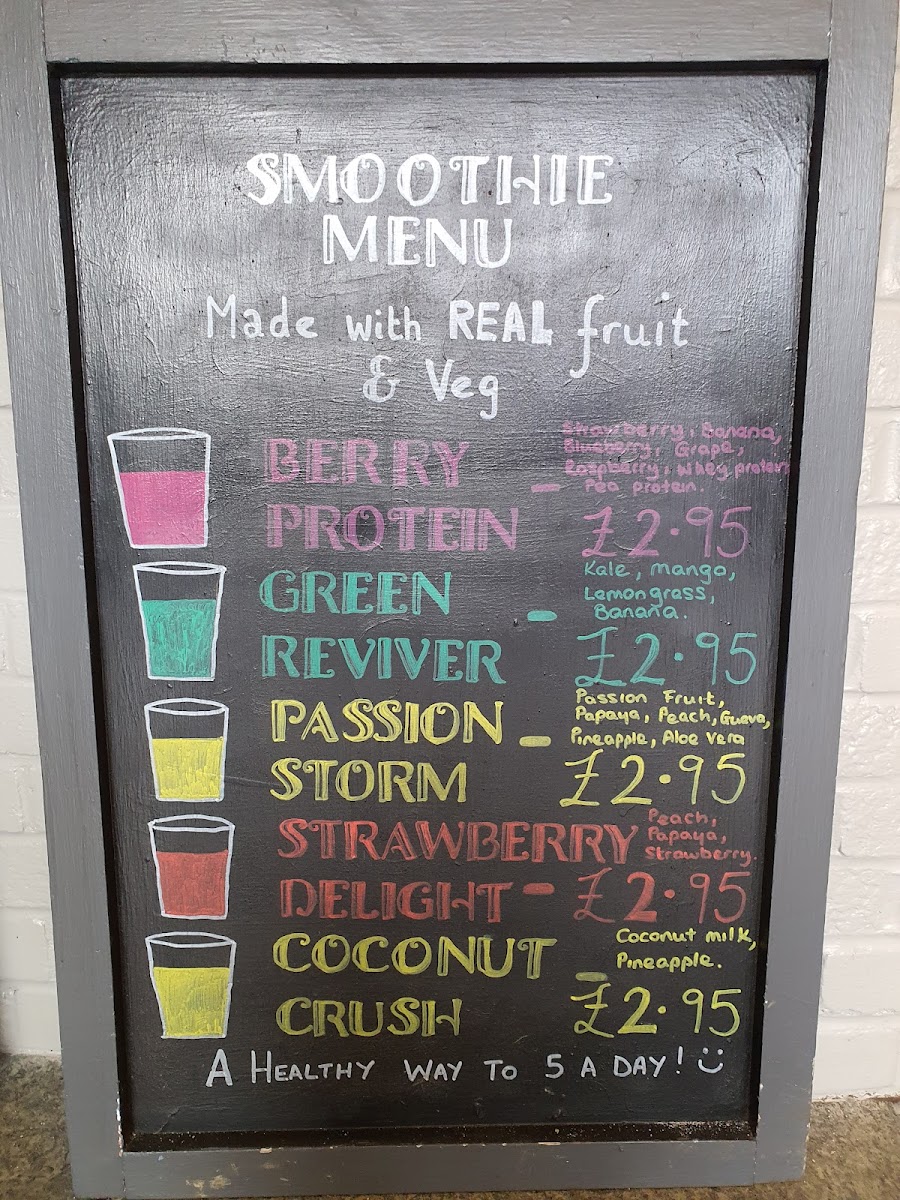 SMOOTHIE
MENU
Made with REAL fruit
& Veg
BERRY
PROTEIN -
Strawberry, Banana,
Blueberry, Grape,
Raspberry, Whey protein
Pea protein.
£2.95
GREEN
REVIVER -
Kale, Mango,
Lemongrass,
Banana.
£2.95
PASSION
STORM -
Passion Fruit,
Papaya, Peach, Guava,
Pineapple, Aloe Vera
£2.95
STRAWBERRY
DELIGHT -
Peach,
Papaya,
Strawberry.
£2.95
COCONUT
CRUSH -
Coconut milk,
Pineapple.
£2.95
A HEALTHY WAY TO 5 A DAY!